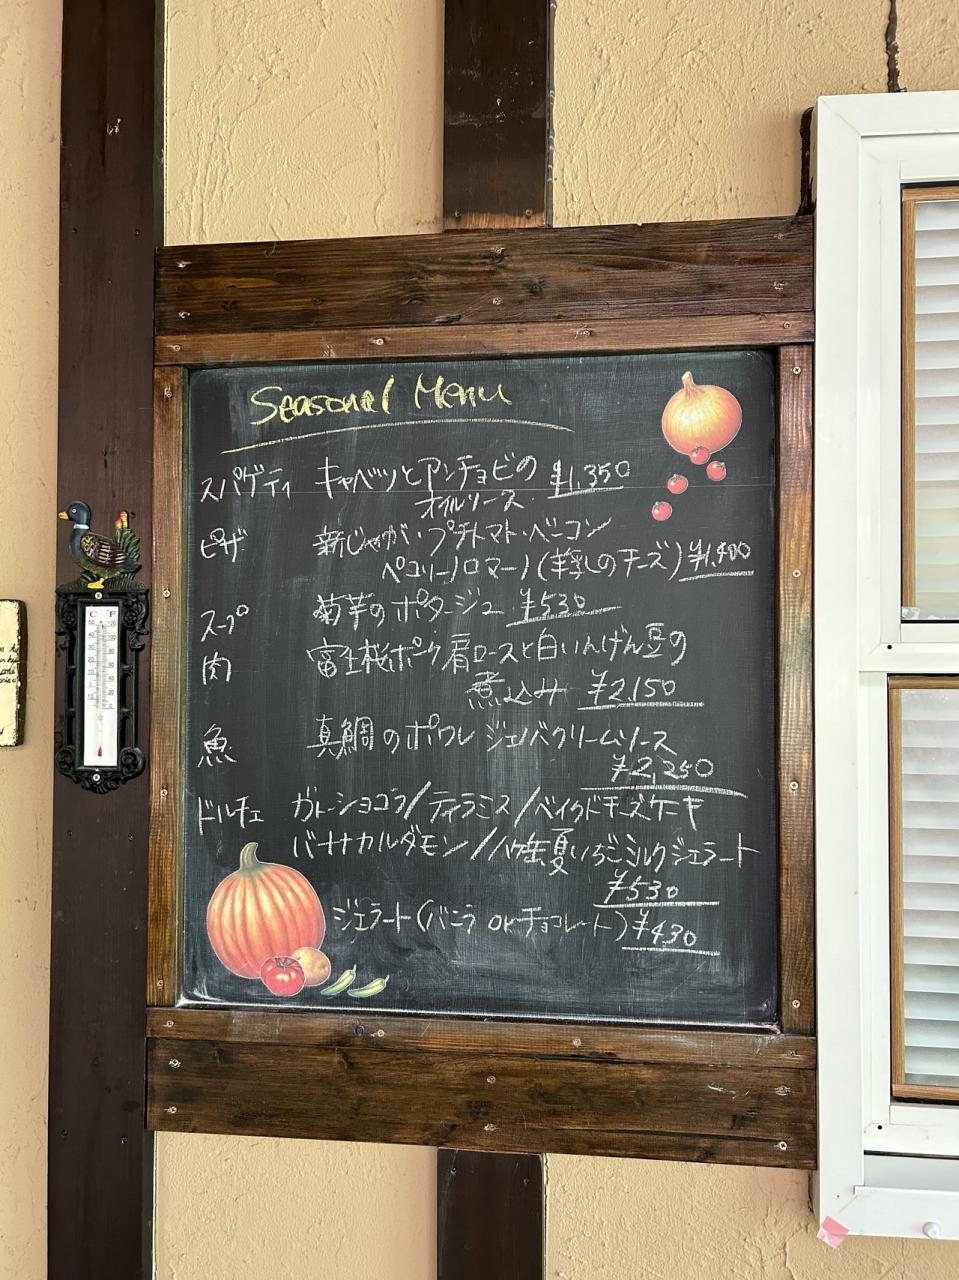 Seasonal Menu
スパゲティ キャベツとアンチョビの ¥1,350
オイルソース
ピザ 新じゃが・プチトマト・ベーコン
ペコリーノロマーノ(羊乳のチーズ) ¥1,900
スープ 菊芋のポタージュ ¥530
肉 富士桜ポーク肩ロースと白いんげん豆の
煮込み ¥2,150
魚 真鯛のポワレ ジェノバクリームソース
¥2,250
ドルチェ ガトーショコラ/ティラミス/ベイクドチーズケーキ
バナナカルダモン/夏いちごミルクジェラート
¥530
ジェラート(バニラ orチョコレート) ¥430